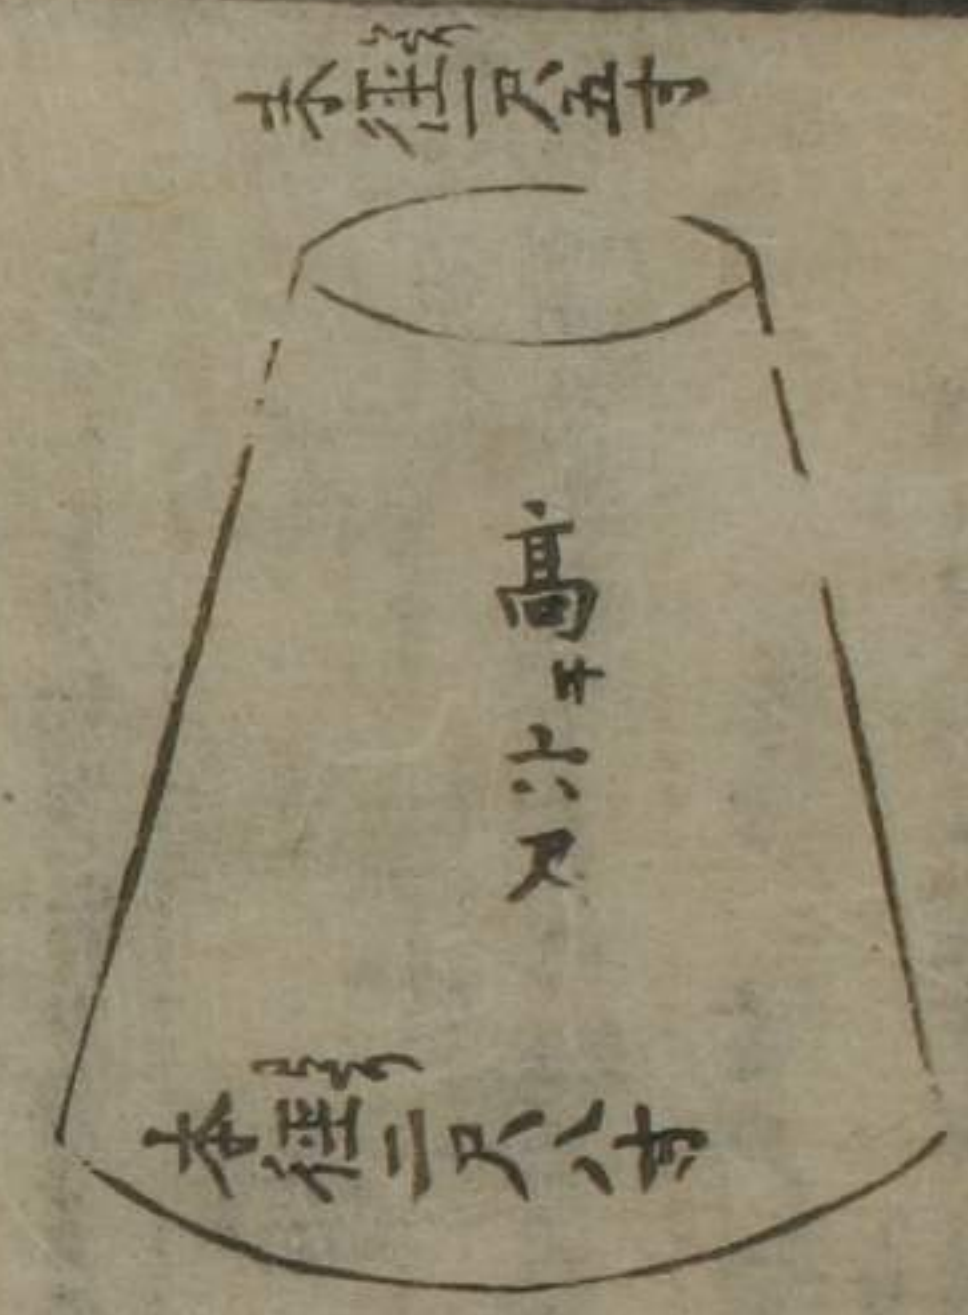 末径一尺五寸
高サ六尺
本径二尺八寸